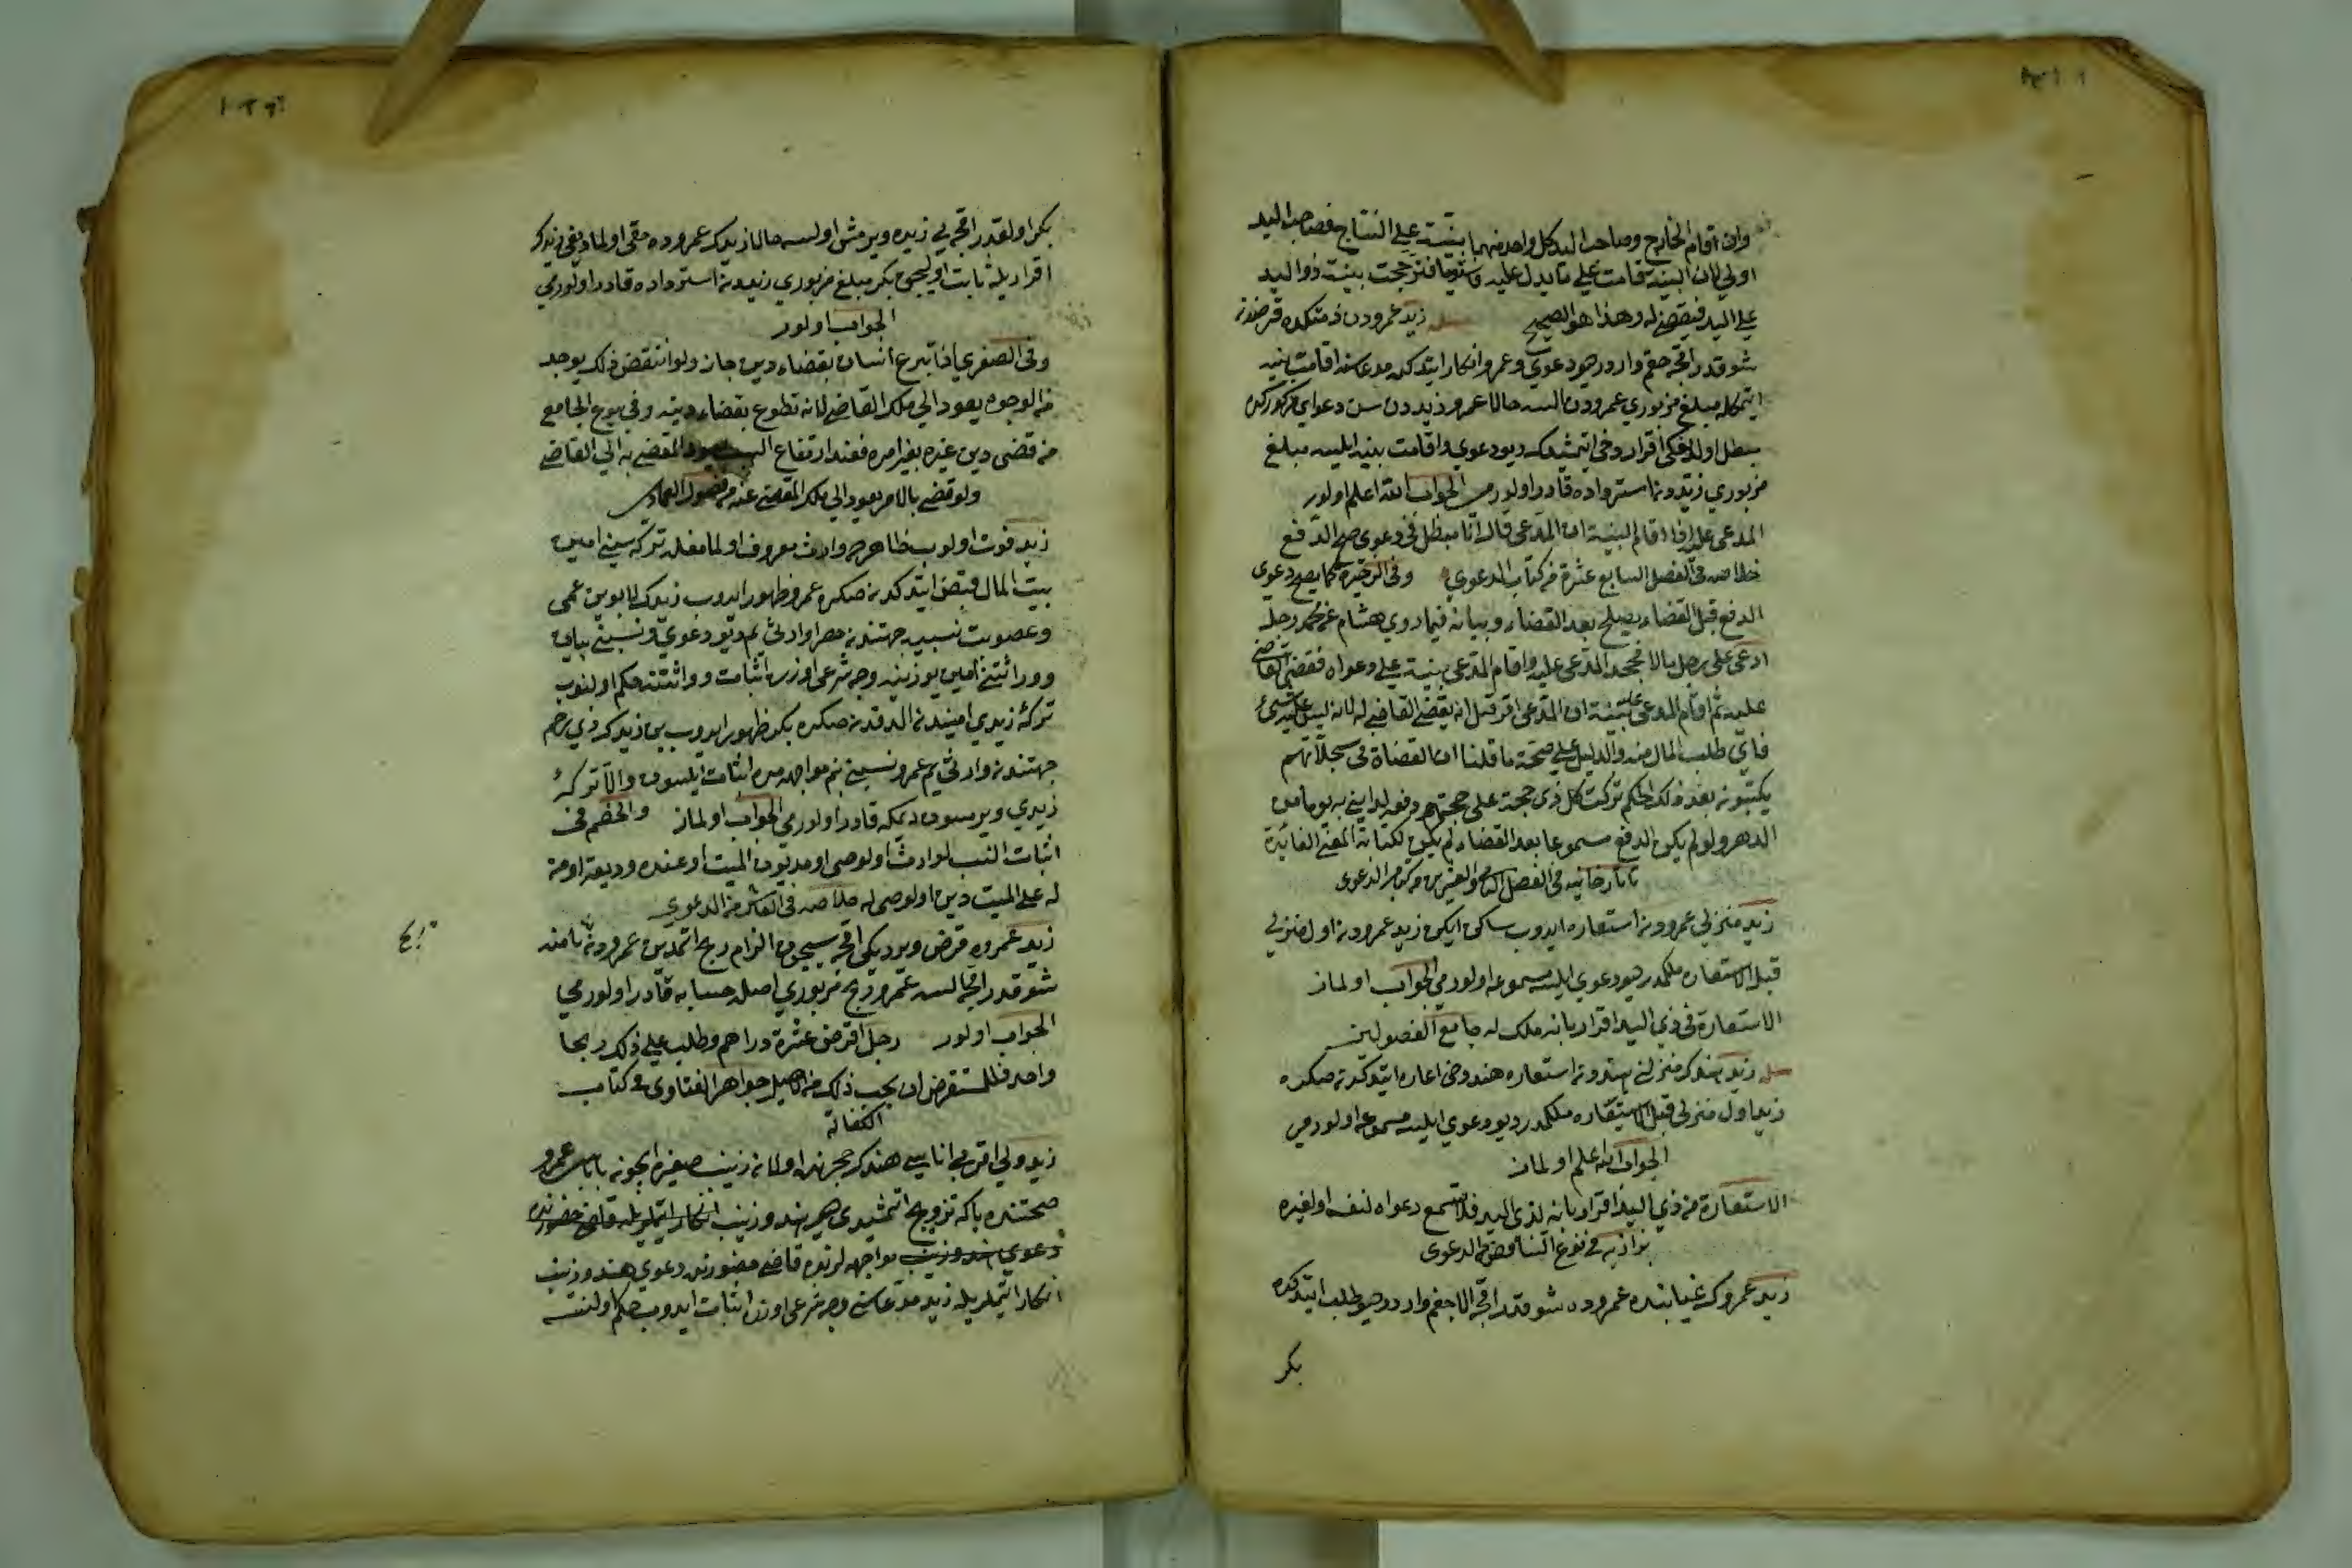 وان اقام الخارج وصاحب اليد كل واحد منهما بينة على النتاج فصاحب اليد
اولى لان البينة قامت على ما يدل عليه فاستويا فترجحت بينة ذو اليد
على اليد فيقضى له وهذا هو الصحيح مسله زيد عمرودن ذمتكده قرضدن
شو قدر اقچه حقم واردر ديو دعوى وعمرو انكار ايتدكده مدعاسنه اقامت بينه
ايتمكله مبلغ مزبورى عمرودن السه حالا عمرو زيددن سن دعواى مزكورده
مبطل اولديغكى اقرار ديو دعوى واقامت بينه ايليسه مبلغ
مزبورى زيددن استرداده قادر اولورمى الجواب الله اعلم اولور
المدعى عليه اذا اقام البينة ان المدعى قال انا مبطل فى دعوى صح الدفع
خلاصه فى الفصل السابع عشرة من كتاب الدعوى وفى الذخيرة كما يصح دعوى
الدفع قبل القضاء يصلح بعد القضاء وبيانه فيما روى هشام عن محمد رجل
ادعى على رجل مالا فجحد المدعى عليه واقام المدعى بينة على دعواه فقضى القاضى
عليه ثم اقام المدعى عليه بينة ان المدعى اقر قبل ان يقضى القاضى له انه ليس عليه شئ
فاى طلب المال منه والدليل على صحة ما قلنا ان القضاة فى سجلاتهم
يكتبون بعد ذلك الحكم تركت كل ذى حجة على حجته ودفعه اينى به يوما من
الدهر ولو لم يكن الدفع مسموعا بعد القضاء لم يكن لكتابة المعنى الفائدة
تاتارخانيه فى الفصل والعشرين من كتاب الدعوى
زيد منزلى عمرودن استعاره ايدوب ساكن ايكن زيد عمرودن اول منزلى
قبل الاستعاره ملكمدر ديو دعوى ايليسه مسموعه اولورمى الجواب اولماز
الاستعارة فى ذى اليد اقرار بانه ملك له جامع الفصولين
مسله زيد هندك منزلنى هنددن استعاره هند دخى اعاره ايتدكدن صكره
زيد اول منزلى قبل الاستعاره ملكمدر ديو دعوى ايليسه مسموعه اولورمى
الجواب الله اعلم اولماز
الاستعارة من ذى اليد اقرار بانه لذى اليد فلا تسمع دعواه لنفسه او لغيره
بزازيه فى نوع التناقض من الدعوى
زيد عمروك غيابنده عمروده شو قدر اقچه الاجغم واردر ديو طلب ايتدكده
بكر
بكر اول قدر اقچه يى زيده ويرمش اولسه حالا زيدك عمروده حقى اولماديغى زيدك
اقراريله ثابت اوليجق بكر مبلغ مزبورى زيددن استرداده قادر اولورمى
الجواب اولور
وفى الصغرى اذا تبرع انسان بقضاء دين جاز ولو انتقض ذلك بوجه
من الوجوه يعود الى ملك القاضى لانه تطوع بقضاء دينه وفى بيوع الجامع
من قضى دين غيره بغير امره فعند ارتفاع السبب يعود المقضى به الى القاضى
ولو قضى بالامر يعود الى ملك المقضى عنه من فصول العمادى
زيد فوت اولوب ظاهرده وارث معروفى اولمامغله تركه سينى امين
بيت المال قبض ايتدكدن صكره عمرو ظهور ايدوب زيدك لابوين عمى
وعصوبت نسبيه جهتندن حصرا وارثى يم ديو دعوى ونسبنى بيان
ووراثتنى امين يوزينه وجه شرعى اوزره اثبات ووراثتنه حكم اولنوب
تركۀ زيدى اميندن الدقدن صكره بكر ظهور ايدوب بن زيدك ذى رحم
جهتندن وارثى يم عمرو نسبنى بنم مواجهه مده اثبات ايلسون والا تركۀ
زيدى ويرسون ديمكه قادر اولورمى الجواب اولماز والخصم فى
اثبات النسب لوارث او لوصى او مديون الميت او عنده وديعة او من
له على الميت دين او لوصى له خلاصه فى العاشر من الدعوى
زيد عمروه قرض ويرديكى اقچه سيچون الزام ربح ايتمدين عمرودن ربح نامنه
شو قدر اقچه السه عمرو ربح مزبورى اصله حسابه قادر اولورمى
الجواب اولور رجل اقرض عشرة دراهم وطلب على ذلك ربحا
واحد فللمستقرض ان يحسب ذلك من الاصل جواهر الفتاوى فى كتاب
الكفالة
زيد ولى اقربى اناسى هندك حجرنده اولان زينب صغيره ايچون باباسى عمرو
صحتنده بكا تزويج ايتمشيدى ديو هند وزينب انكار ايتملريله قاضى حضورنده
دعوى هند وزينب مواجهه لرنده قاضى حضورنده دعوى هند وزينب
انكار ايتملريله زيد مدعاسنى وجه شرعى اوزره اثبات ايدوب حكم اولنسه